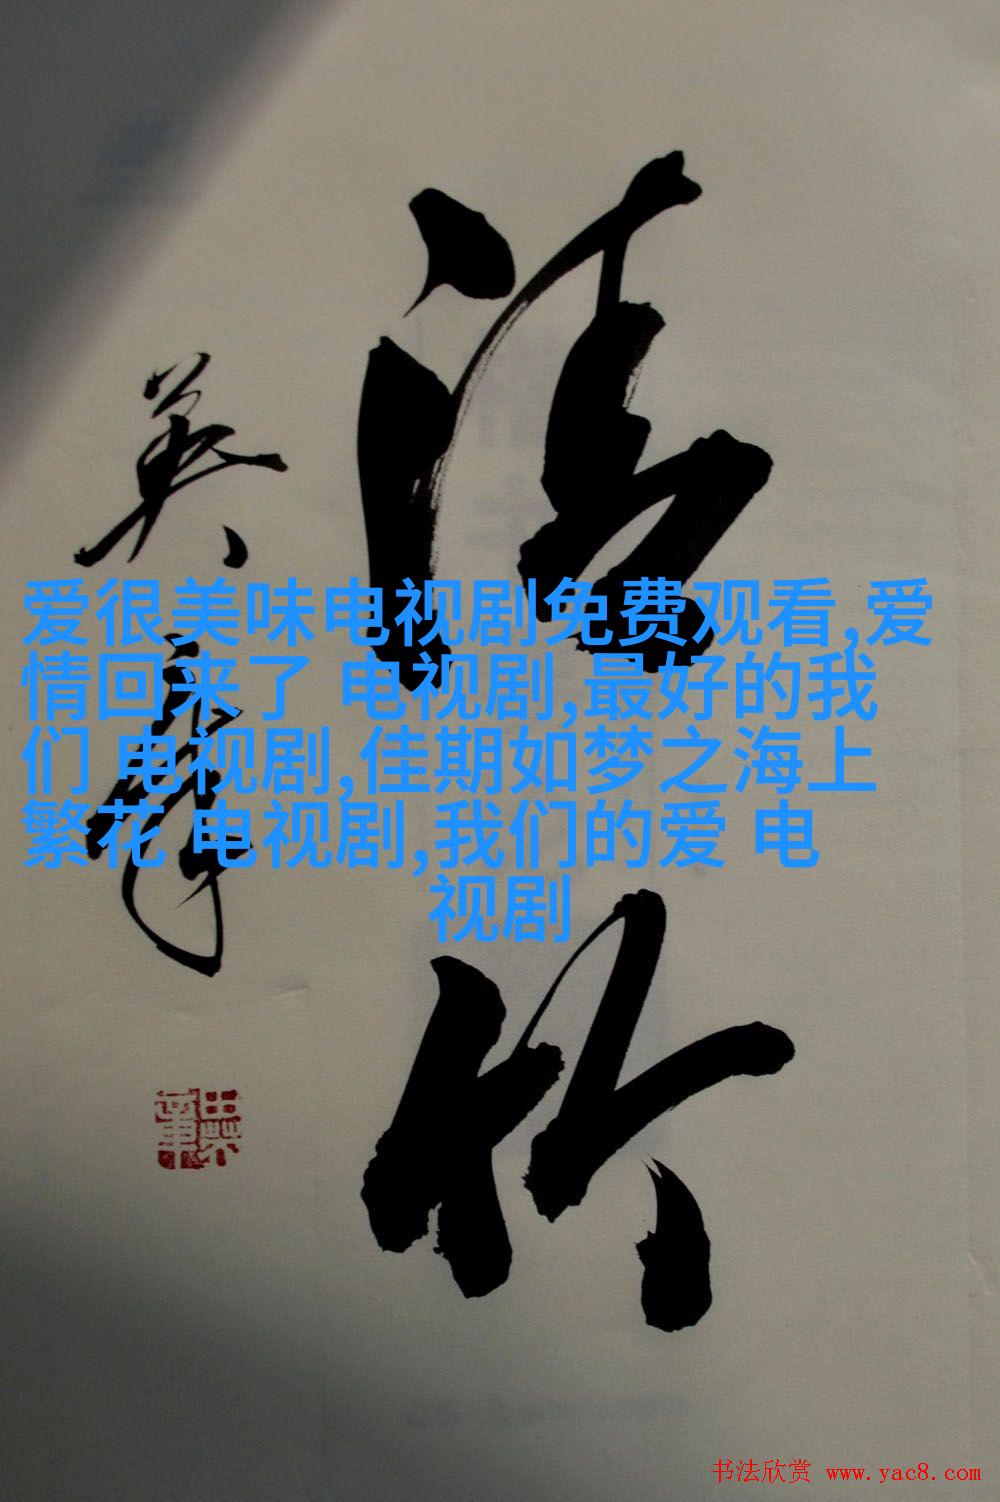 英章
爱很美味电视剧免费观看,爱
情回来了 电视剧,最好的我
们 电视剧,佳期如梦之海上
繁花 电视剧,我们的爱 电
视剧
书法欣赏 www.yac8.com